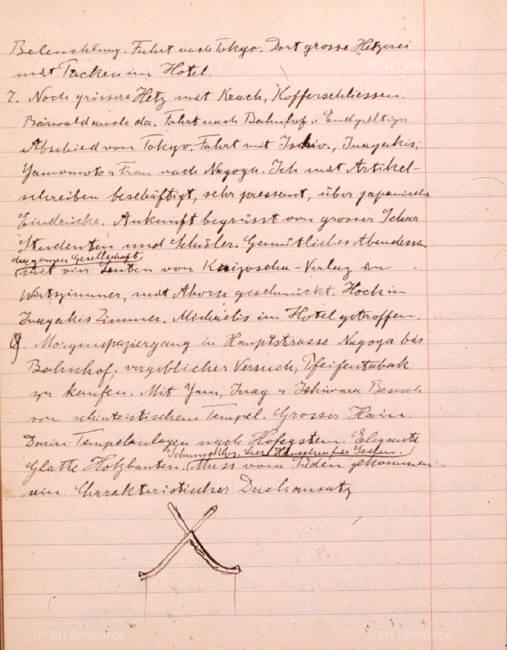 Beleuchtung. Fahrt nach Tokyo. Dort grosse Hetzerei
mit Packen im Hotel.
7. Noch grössere Hetz mit Krach, Kofferschliessen.
Bärwald auch da. Fahrt nach Bahnhof u Endgültiger
Abschied von Tokyo. Fahrt mit Inagakis,
Yamomoto u Frau nach Nagoya. Ich mit Artikel-
schreiben beschäftigt, sehr pressant, über japanische
Eindrücke. Ankunft begrüsst von grosser Schar
Studenten und Schüler. Gemütliches Abendessen
der ganzen Gesellschaft
mit vier Leuten von Kaizoscha-Verlag im
Wirtszimmer, mit Ahorn geschmückt. Hoch in
Inagakis Zimmer. Michaelis im Hotel getroffen.
8. Morgenspaziergang in Hauptstrasse Nagoya bis
Bahnhof. vergeblicher Versuch, Pfeifentabak
zu kaufen. Mit Yam, Inag u Ishiwara Besuch
von schintoistischem Tempel. Grosser Hain.
Darin Tempelanlagen nach Hofsystem. Elegante
glatte Holzbauten. Muss vom Süden gekommen
sein. Charakteristischer Dachansatz
© Art Resource
© Art Resource